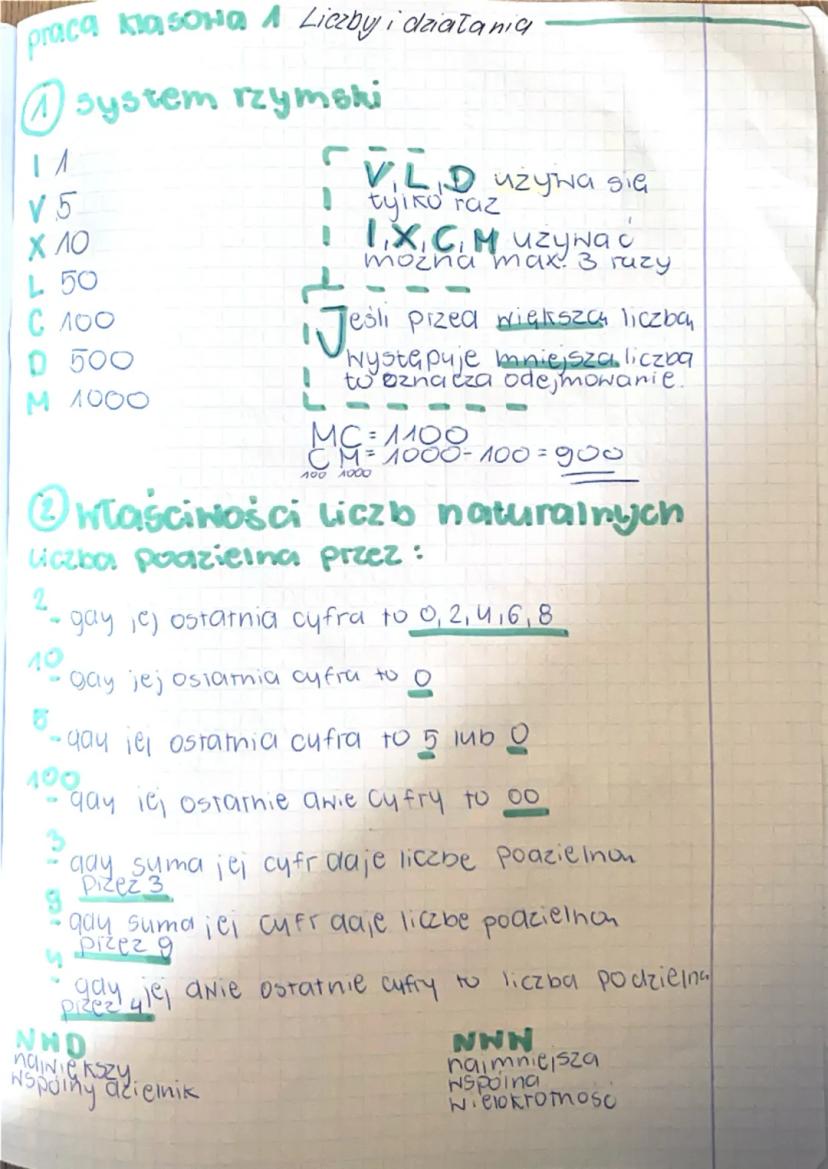 praca klasowa 1 Liczby i działania
① system rzymski
I 1
V 5
X 10
L 50
C 100
D 500
M 1000
V, L, D używa się
tylko raz
I, X, C, M używać
można max. 3 razy
Jeśli przed większą liczbą
występuje mniejsza liczba
to oznacza odejmowanie.
MC = 1100
CM = 1000 - 100 = 900
100 1000
② właściwości liczb naturalnych
liczba podzielna przez:
2
- gdy jej ostatnia cyfra to 0, 2, 4, 6, 8
10
- gdy jej ostatnia cyfra to 0
5
- gdy jej ostatnia cyfra to 5 lub 0
100
- gdy jej ostatnie dwie cyfry to 00
3
- gdy suma jej cyfr daje liczbę podzielną
przez 3
9
- gdy suma jej cyfr daje liczbę podzielną
przez 9
4
- gdy jej dwie ostatnie cyfry to liczba podzielna
przez 4
NWD
największy
wspólny dzielnik
NWW
najmniejsza
wspólna
wielokrotność